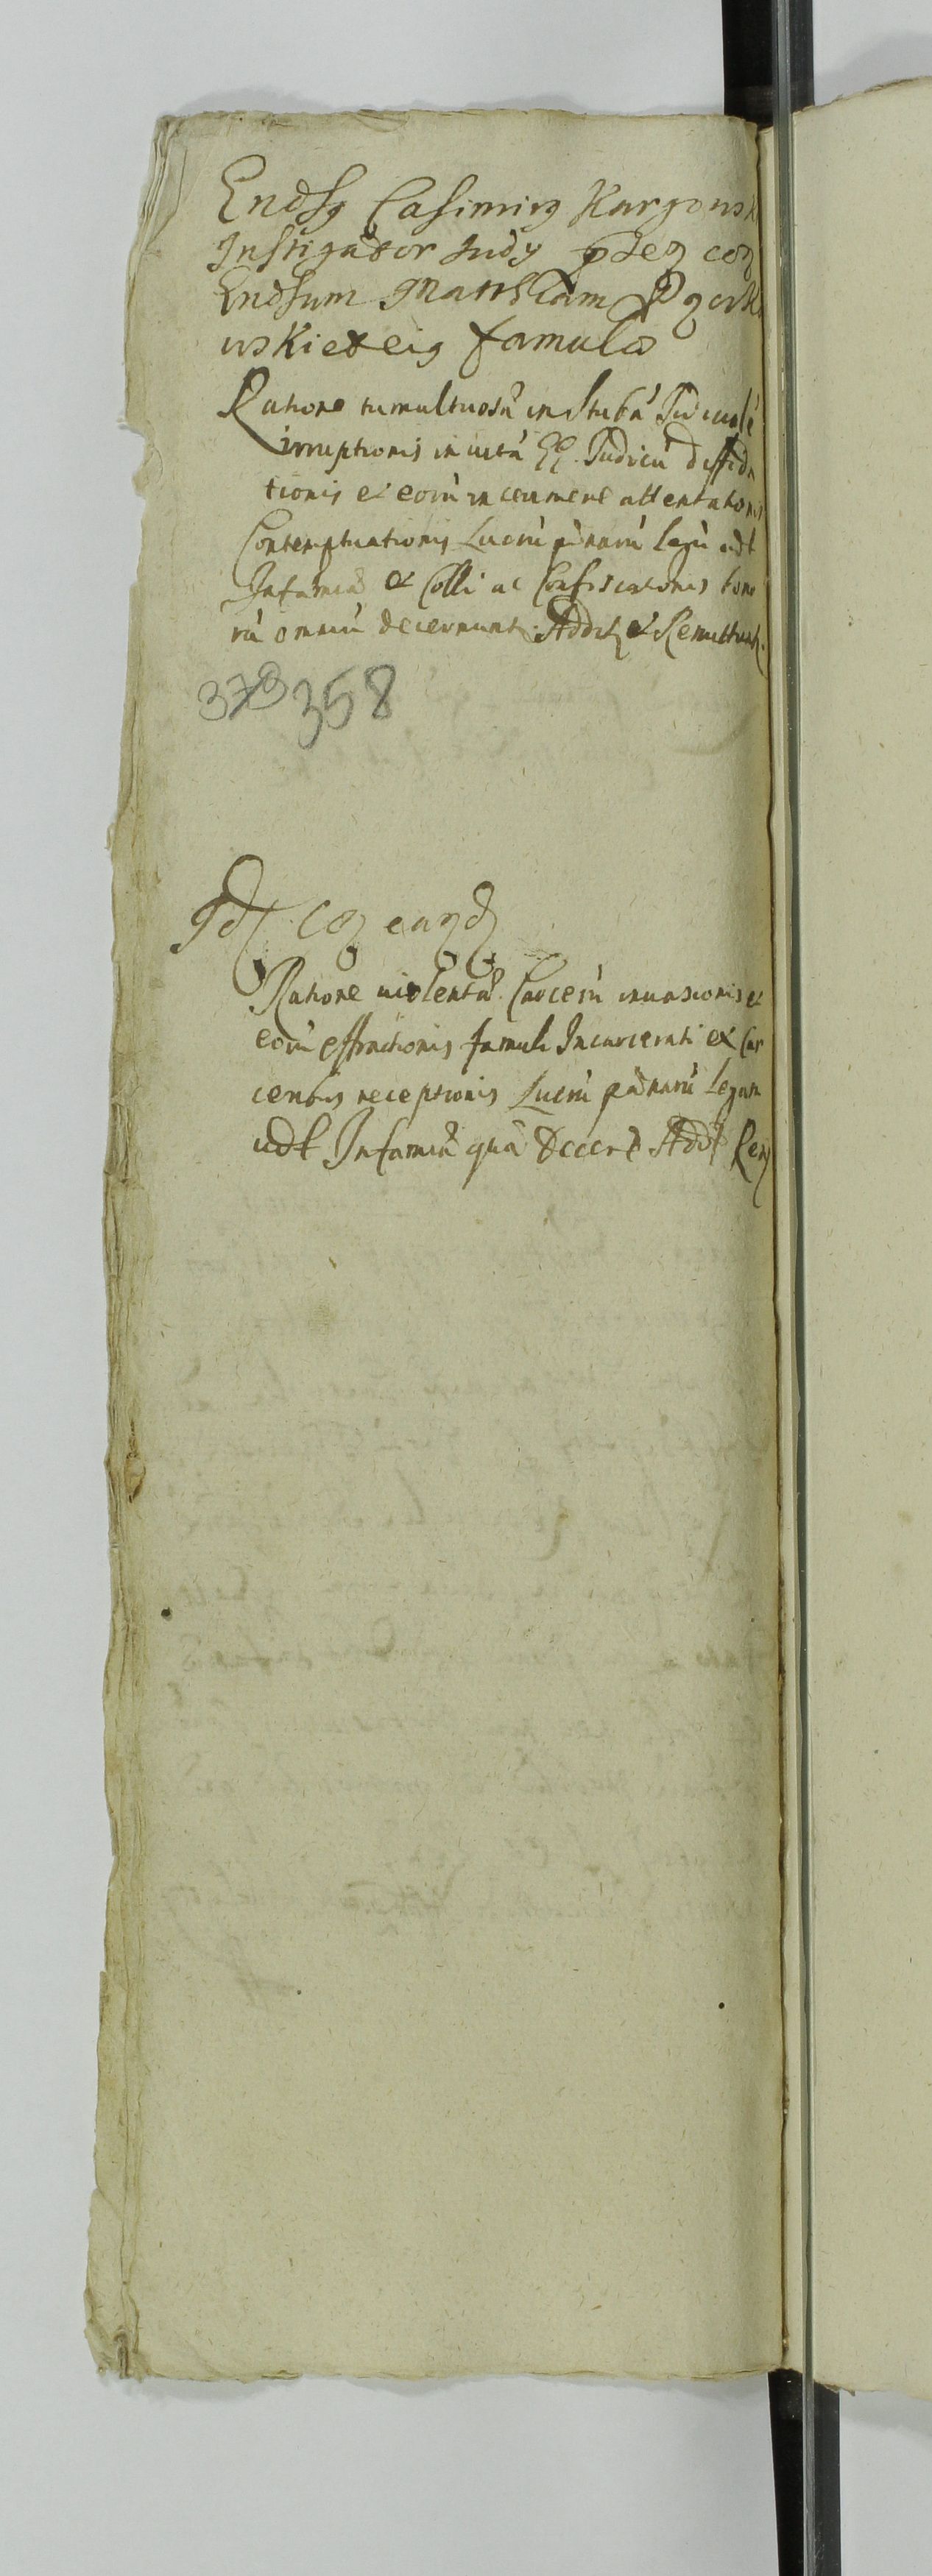 Endsg Casimirg Kargowsk
Instigator Judy pteg cog
Endsum Matthiam
wskiet eig famulo
Ratione tumultuosa in stuba Judiciale
irruptionis in vita GG. Judicu diffida
tionis et eoru in crumene attentationis
Contemptuationis Lueru pænaru legu udt
Infamia et Colli ac Confiscationis bono
ru omniu decernunt. Addit et Remittunt.
373 358
Idt Cog eungd
Ratione violenta Carceru invasionis et
eoru effractionis famuli Incarcerati ex Car
ceribus receptionis Lueru pænaru Legum
udt Infamia qua Decert Addt Rem